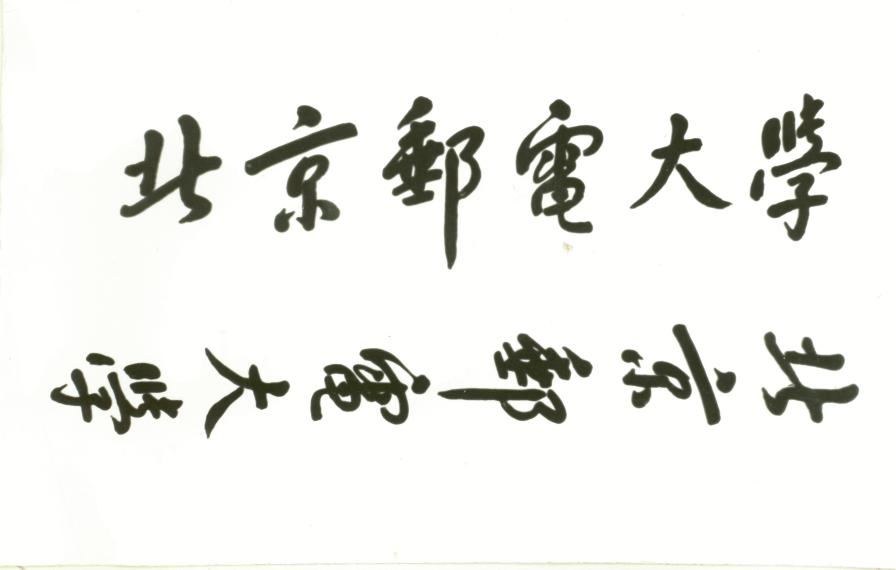 北京郵電大學
北京郵電大學